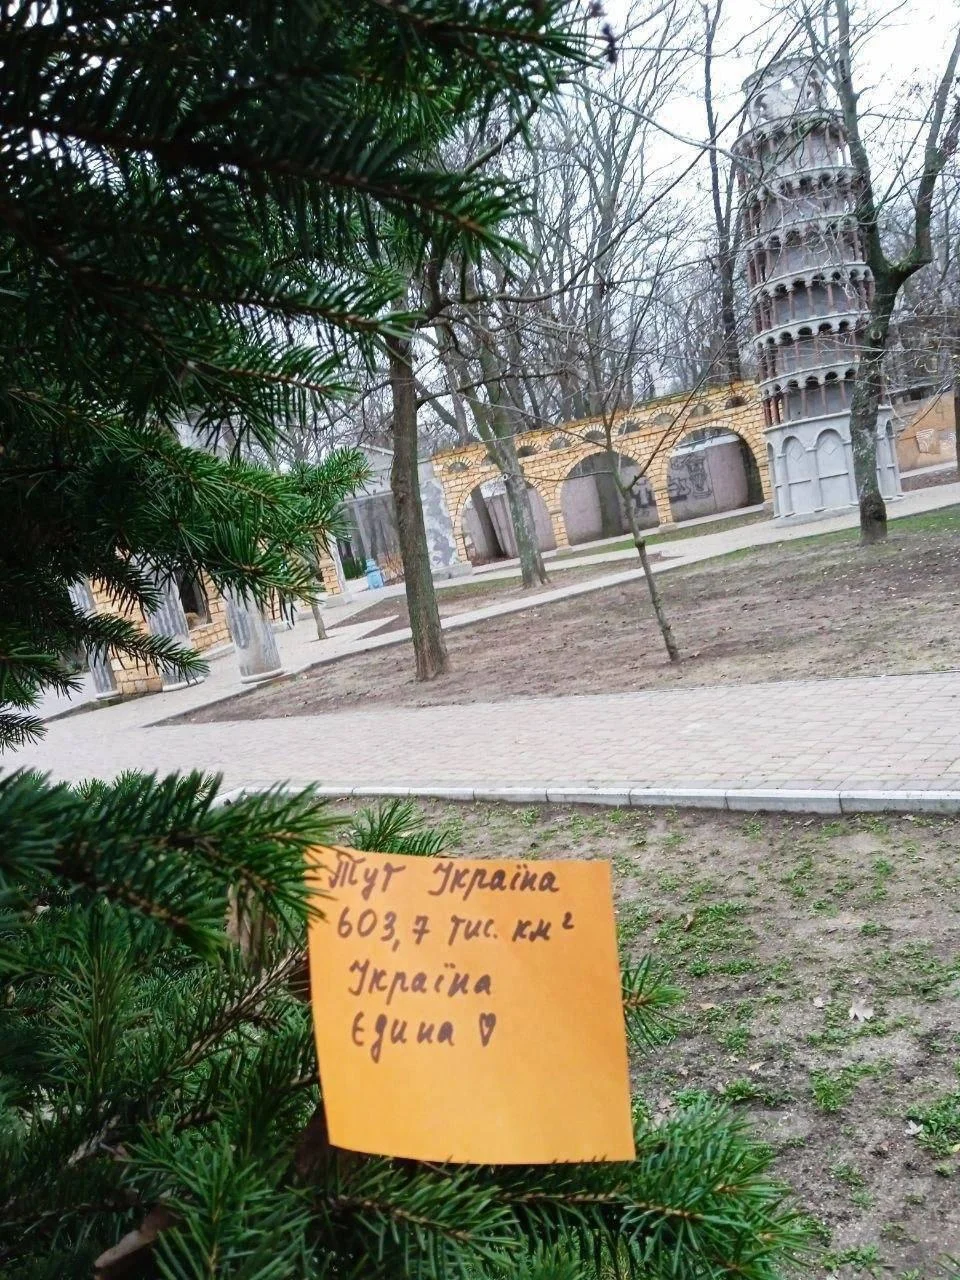 Тут Україна
603,7 тис. км²
Україна
Єдина ♡